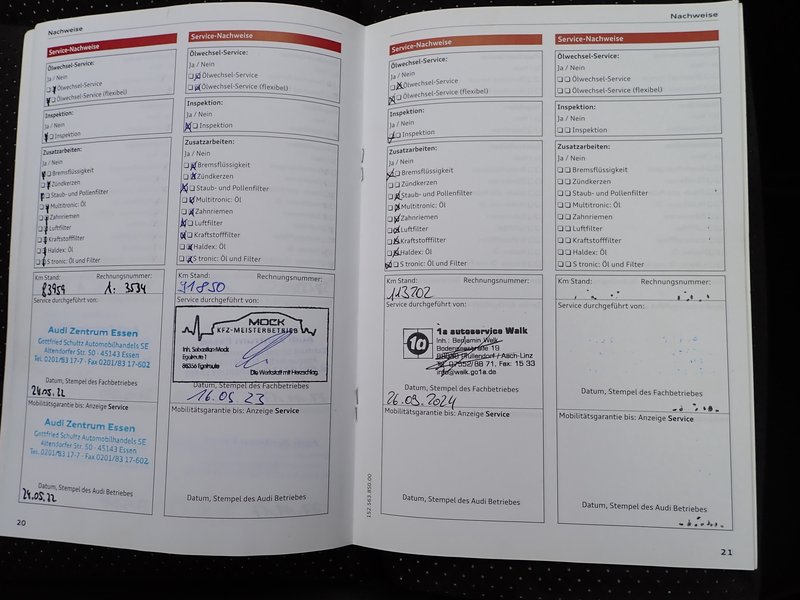 Nachweise
Service-Nachweise
Ölwechsel-Service:
Ja / Nein
Ölwechsel-Service
Ölwechsel-Service (flexibel)
Inspektion:
Ja / Nein
Inspektion
Zusatzarbeiten:
Ja / Nein
Bremsflüssigkeit
Zündkerzen
Staub- und Pollenfilter
Multitronic: Öl
Zahnriemen
Luftfilter
Kraftstofffilter
Haldex: Öl
S tronic: Öl und Filter
Km Stand: Rechnungsnummer:
63959 1: 3534
Service durchgeführt von:
Audi Zentrum Essen
Gottfried Schultz Automobilhandels SE
Altendorfer Str. 50 · 45143 Essen
Tel. 0201/83 17-7 · Fax 0201/83 17-602
Datum, Stempel des Fachbetriebes
24.05.22
Mobilitätsgarantie bis: Anzeige Service
Audi Zentrum Essen
Gottfried Schultz Automobilhandels SE
Altendorfer Str. 50 · 45143 Essen
Tel. 0201/83 17-7 · Fax 0201/83 17-602
24.05.22
Datum, Stempel des Audi Betriebes
20
Service-Nachweise
Ölwechsel-Service:
Ja / Nein
Ölwechsel-Service
Ölwechsel-Service (flexibel)
Inspektion:
Ja / Nein
Inspektion
Zusatzarbeiten:
Ja / Nein
Bremsflüssigkeit
Zündkerzen
Staub- und Pollenfilter
Multitronic: Öl
Zahnriemen
Luftfilter
Kraftstofffilter
Haldex: Öl
S tronic: Öl und Filter
Km Stand: Rechnungsnummer:
91850
Service durchgeführt von:
MOCK
KFZ-MEISTERBETRIEB
Inh. Sebastian Mock
Egelreute 1
88356 Egelreute
Die Werkstatt mit Herzschlag.
Datum, Stempel des Fachbetriebes
16.05 23
Mobilitätsgarantie bis: Anzeige Service
Datum, Stempel des Audi Betriebes
152.563.850.00
Nachweise
Service-Nachweise
Ölwechsel-Service:
Ja / Nein
Ölwechsel-Service
Ölwechsel-Service (flexibel)
Inspektion:
Ja / Nein
Inspektion
Zusatzarbeiten:
Ja / Nein
Bremsflüssigkeit
Zündkerzen
Staub- und Pollenfilter
Multitronic: Öl
Zahnriemen
Luftfilter
Kraftstofffilter
Haldex: Öl
S tronic: Öl und Filter
Km Stand: Rechnungsnummer:
113202
Service durchgeführt von:
1a
1a autoservice Walk
Inh.: Benjamin Walk
Bodenseestraße 19
Pfullendorf / Aach-Linz
Tel. 07552/88 71, Fax: 15 33
info@walk.go1a.de
Datum, Stempel des Fachbetriebes
26.09.2024
Mobilitätsgarantie bis: Anzeige Service
Datum, Stempel des Audi Betriebes
Service-Nachweise
Ölwechsel-Service:
Ja / Nein
Ölwechsel-Service
Ölwechsel-Service (flexibel)
Inspektion:
Ja / Nein
Inspektion
Zusatzarbeiten:
Ja / Nein
Bremsflüssigkeit
Zündkerzen
Staub- und Pollenfilter
Multitronic: Öl
Zahnriemen
Luftfilter
Kraftstofffilter
Haldex: Öl
S tronic: Öl und Filter
Km Stand: Rechnungsnummer:
Service durchgeführt von:
Datum, Stempel des Fachbetriebes
Mobilitätsgarantie bis: Anzeige Service
Datum, Stempel des Audi Betriebes
21